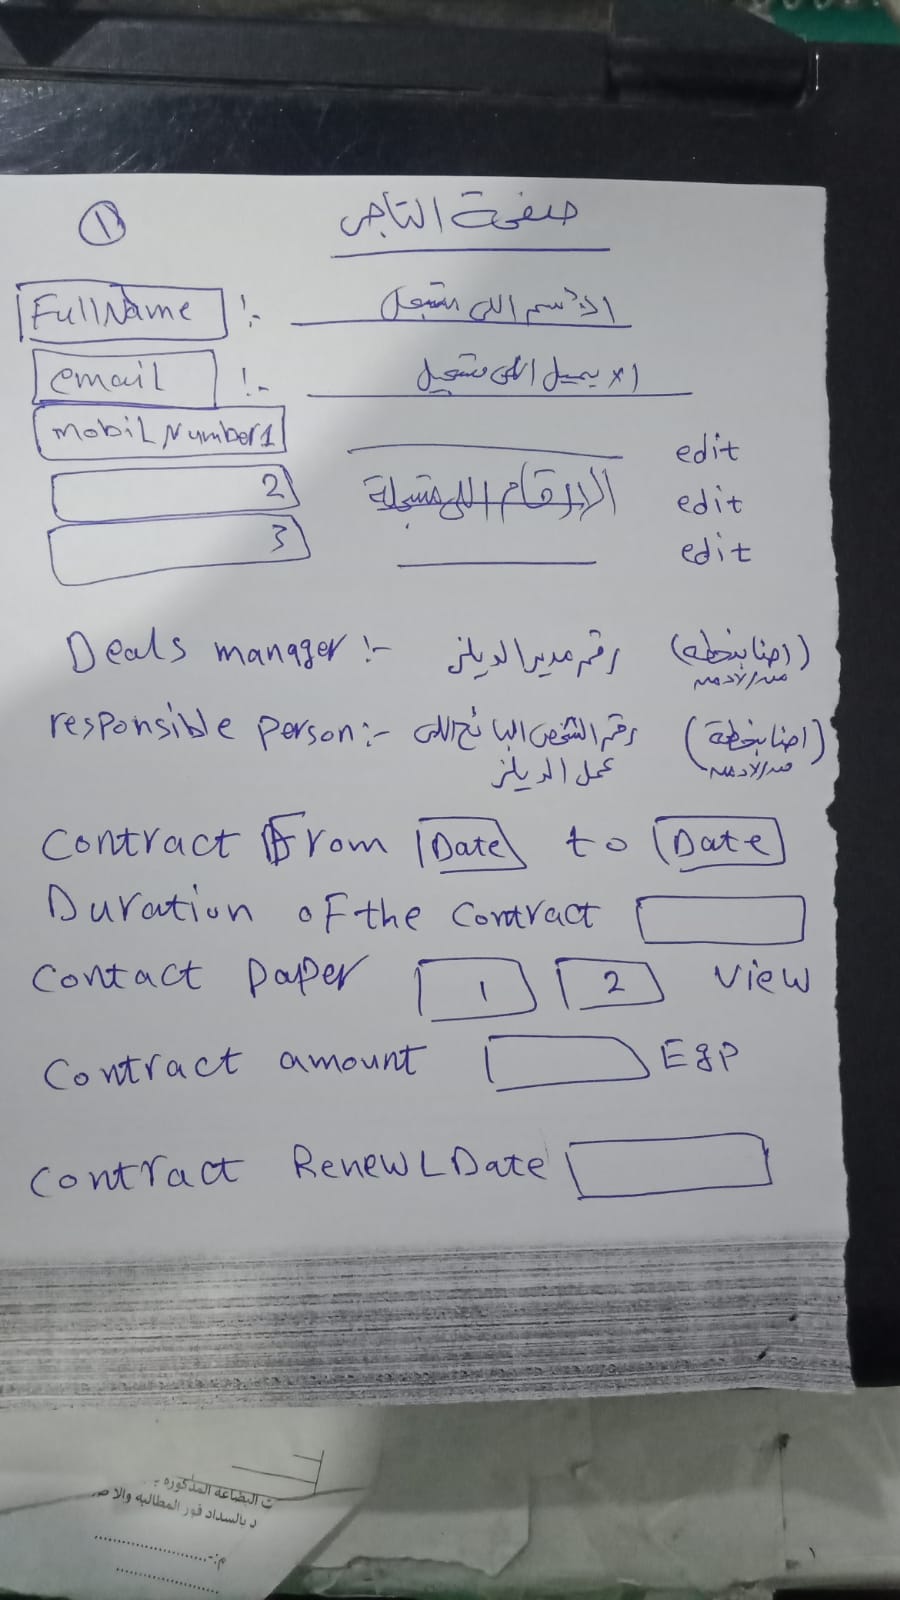 ① صفحة التاجر
FullName :- الاسم اللى متسجل
email :- الايميل اللى متسجل
mobiL Number1 edit
2 الارقام اللى متسجلة edit
3 edit
Deals manager :- رقم مدير الديلز (احنا بنحطه)
من الادمن
responsible person :- رقم الشخص البائع اللى (احنا بنحطة)
عمل الديلز من الادمن
Contract From Date to Date
Duration oF the Contract
Contact paper 1 2 View
Contract amount Egp
Contract RenewL Date
ت البضاعه المذكوره :-
د بالسداد فور المطالبه والا
م:-